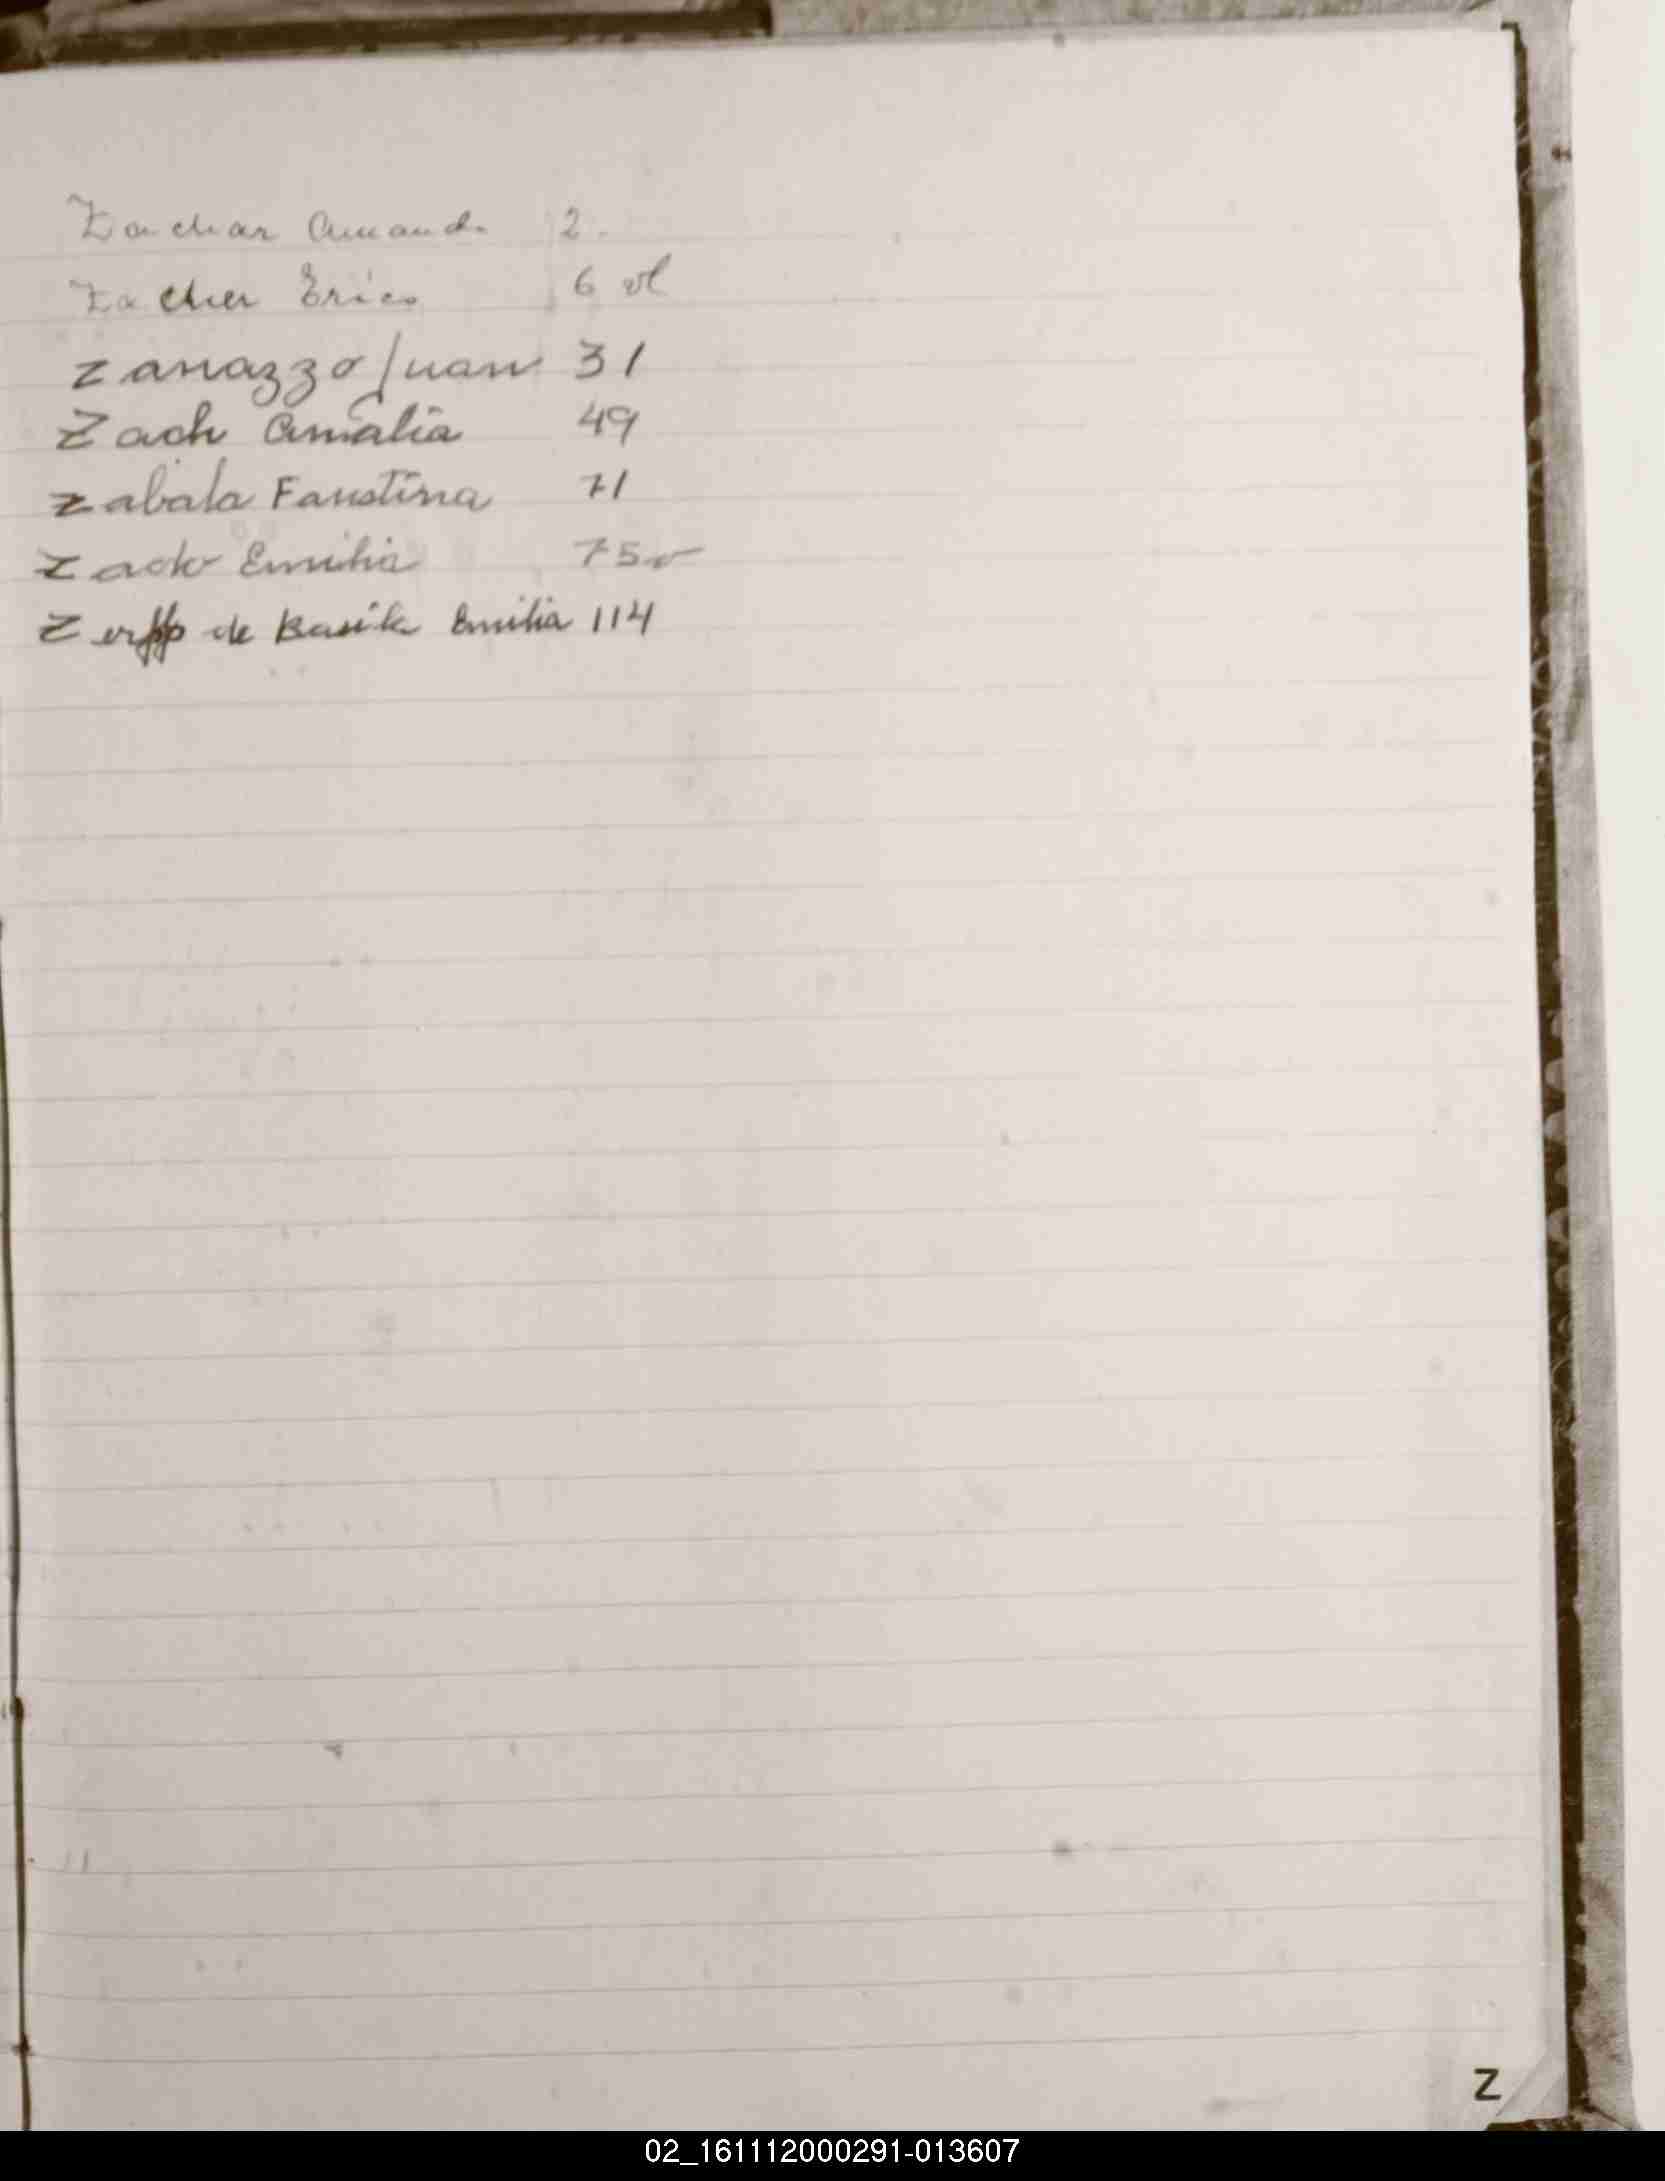 Zachar Amand. 2.
Zacher Erico 6 vl
Zanazzo Juan 31
Zach Amalia 49
Zabala Faustina 71
Zach Emilia 75 v
Zerpp de Kasik Emilia 114
Z
02_161112000291-013607